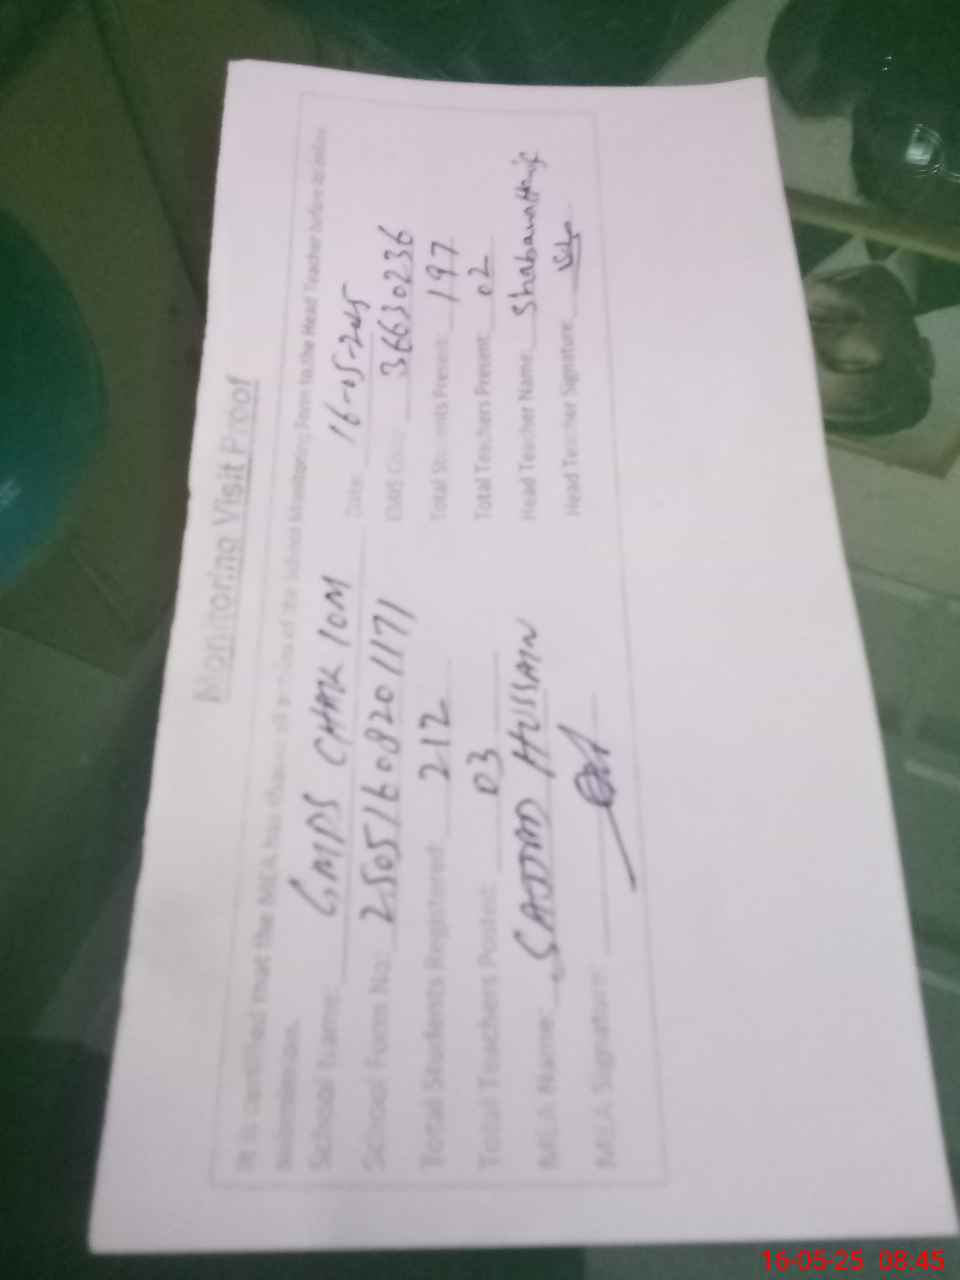 Monitoring Visit Proof
It is certified that the MEA has shown all entries of the School Monitoring Form to the Head Teacher before its online
submission.
School Name: GMPS CHAK 10M Date: 16-05-2025
School Form No: 25051608201171 EMIS Code: 36630236
Total Students Registered: 212 Total Students Present: 197
Total Teachers Posted: 03 Total Teachers Present: 02
MEA Name: SAJJAD HUSSAIN Head Teacher Name: Shabana Hanif
MEA Signature: Head Teacher Signature:
16-05-25 08:45